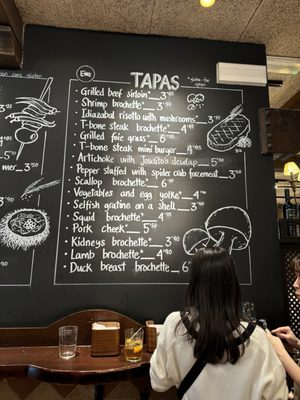 TAPAS
*gluten free option
Grilled beef sirloin* 3'50
Shrimp brochette* 3'80
Idiazabal risotto with mushrooms* 4
T-bone steak brochette* 4'45
Grilled foie grass* 6'00
T-bone steak mini burger* 4'45
Artichoke with Joselito's dewlap 5'50
Pepper stuffed with spider crab forcemeat 3'50
Scallop brochette* 6'45
Vegetables and egg yolke* 4'45
Selfish gratine on a shell 3'50
Squid brochette* 4'45
Pork cheek* 5'50
Kidneys brochette* 3'90
Lamb brochette* 4'40
Duck breast brochette* 6